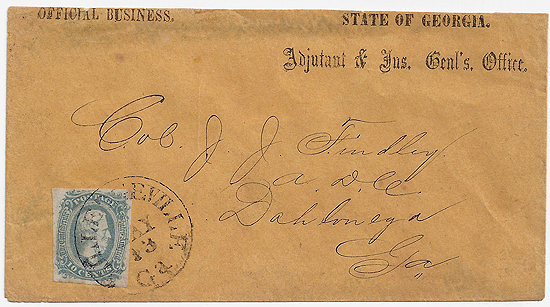 OFFICIAL BUSINESS.
STATE OF GEORGIA.
Adjutant & Ins. Genl's. Office.
Col. J. J. Findley
A. D. C.
Dahlonega
Ga
TEN CENTS